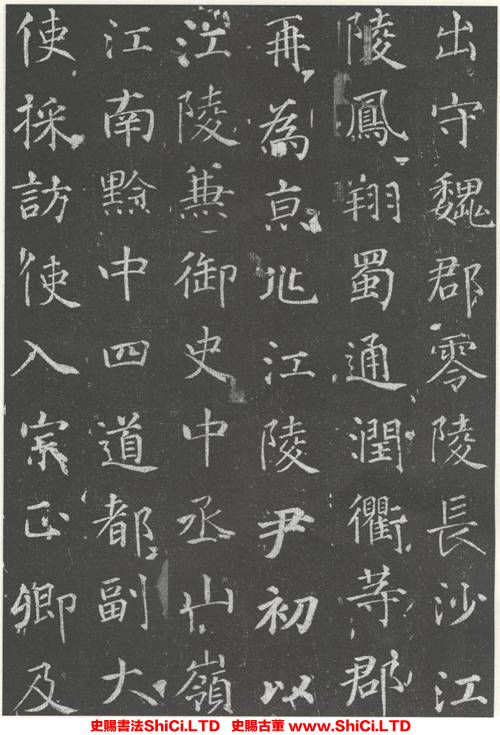 出守魏郡零陵長沙江
陵鳳翔蜀通潤衢等郡
再為京兆江陵尹初以
江陵兼御史中丞山嶺
江南黔中四道都副大
使採訪使入宗正卿及
史賜書法ShiCi.LTD 史賜古董 www.ShiCi.LTD